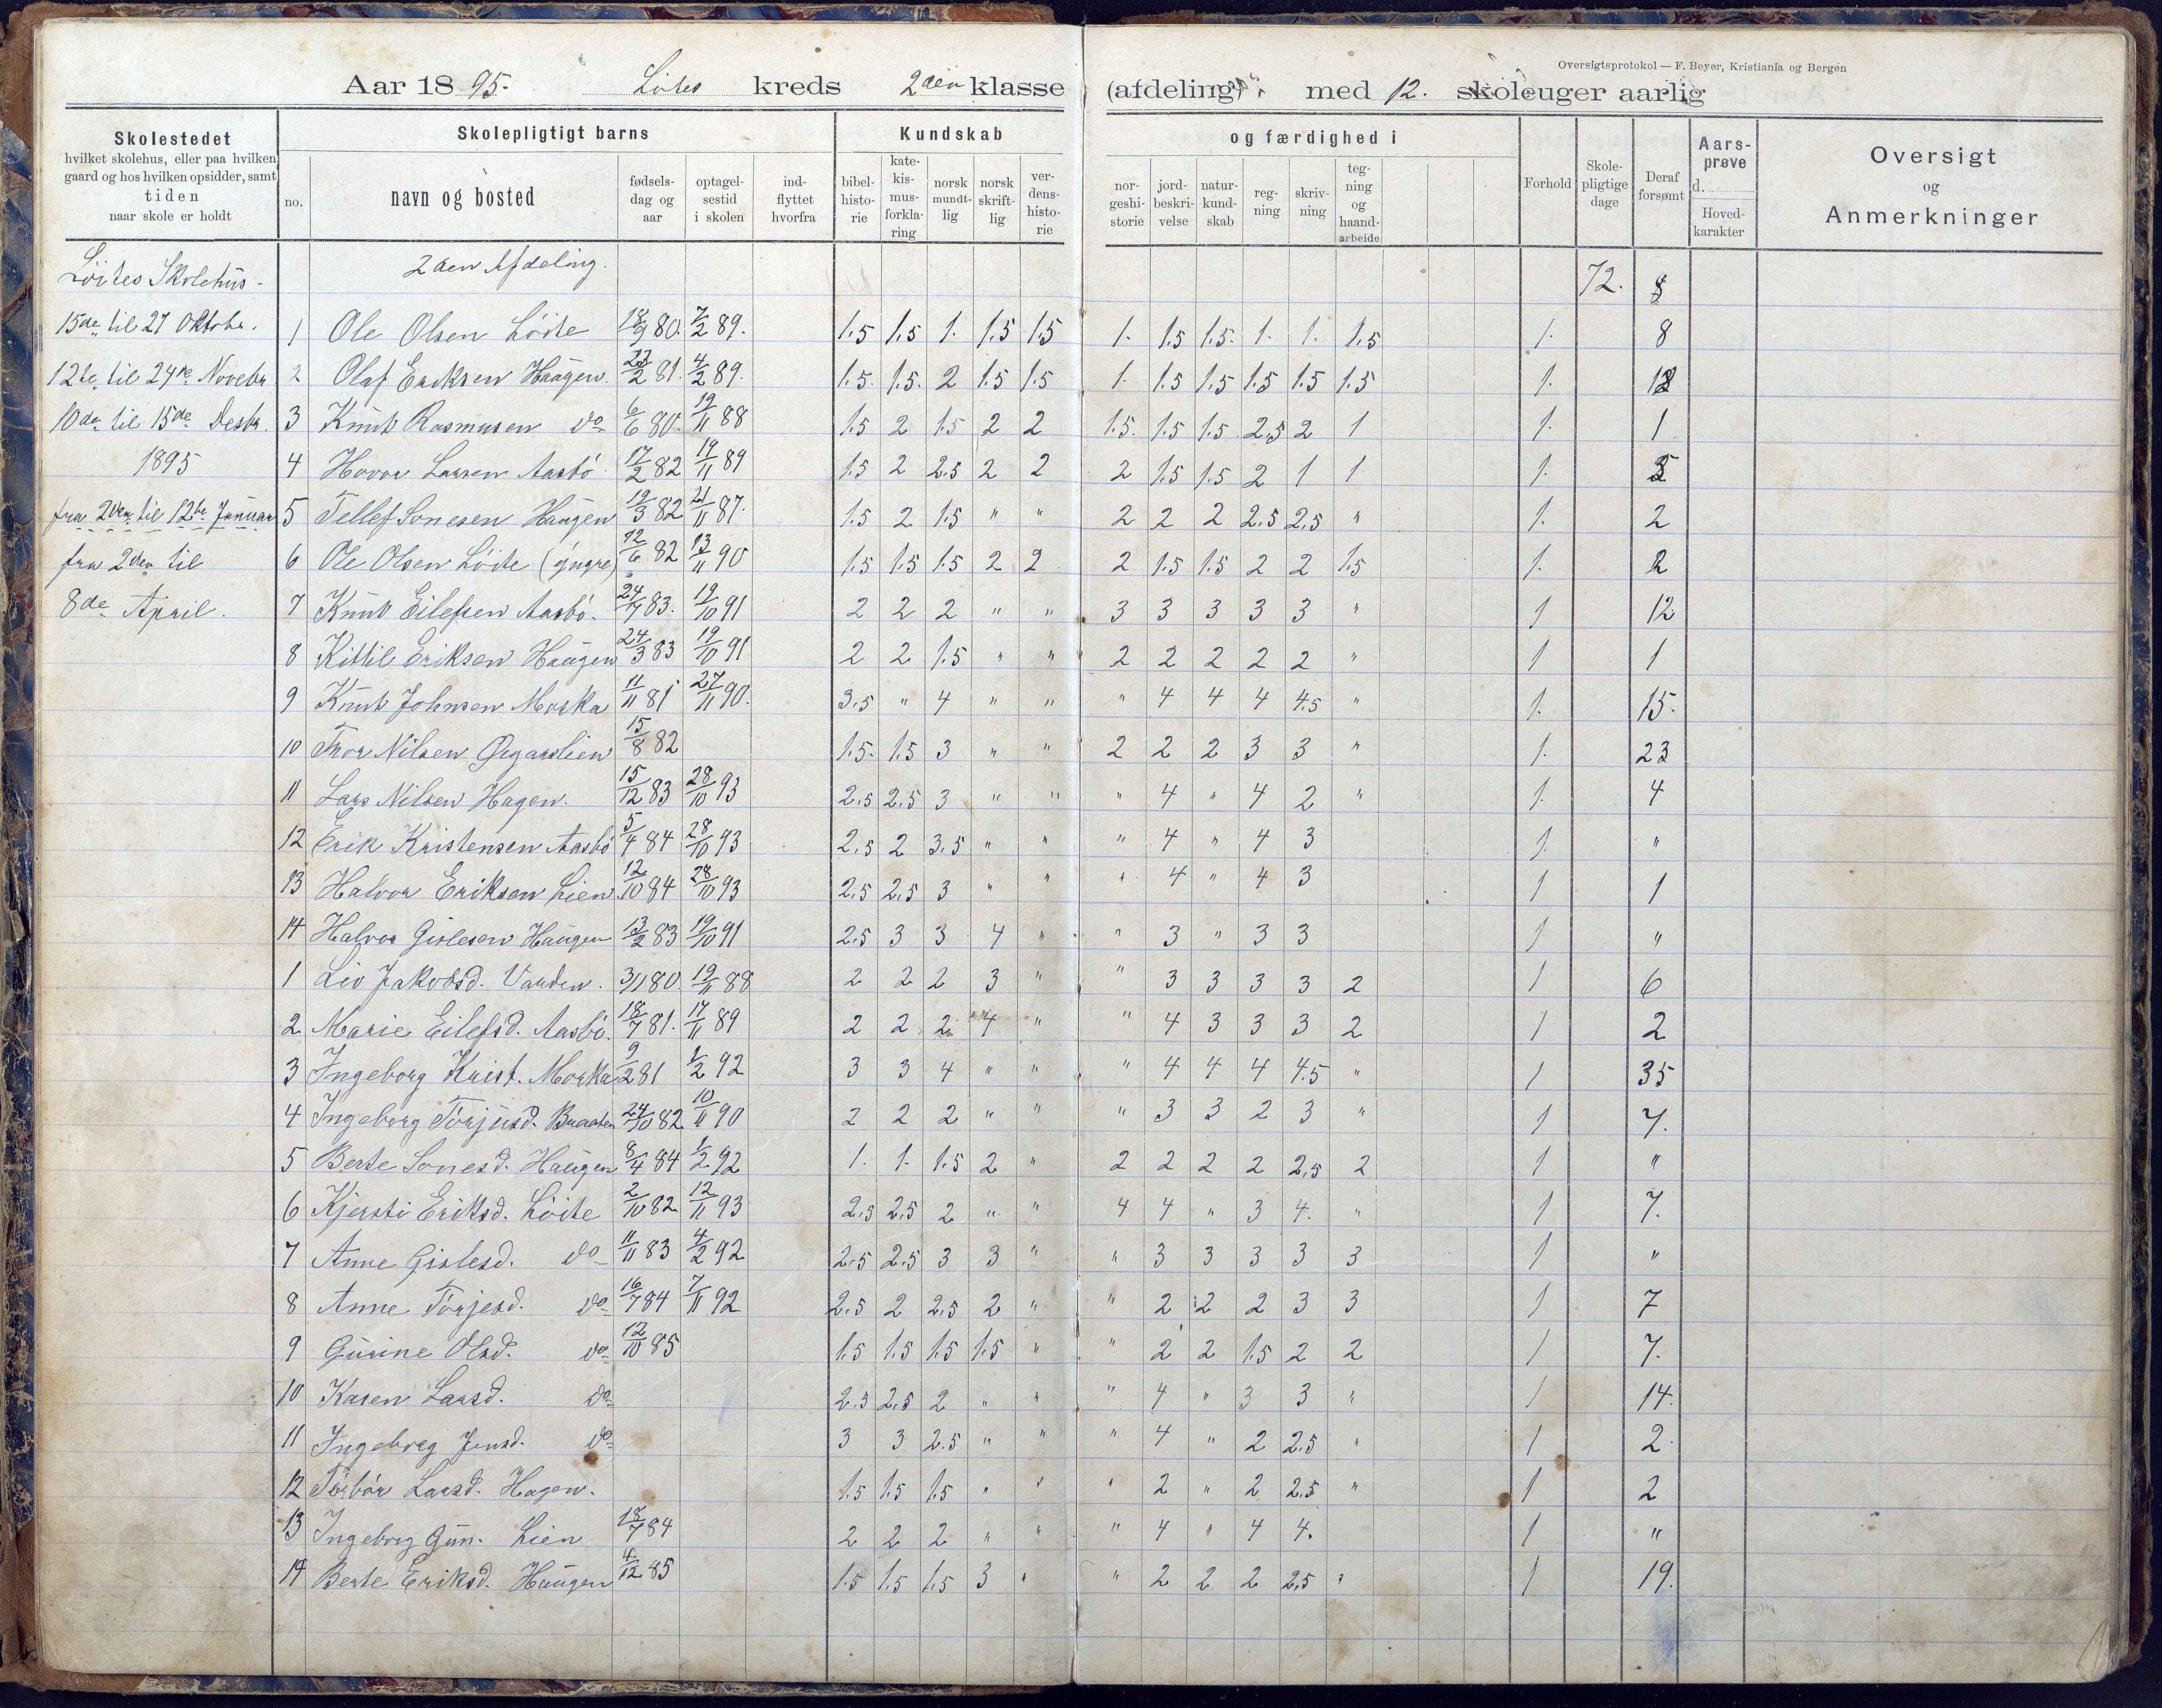 Oversigtsprotokol — F. Beyer, Kristiania og Bergen
Aar 1895. Løites kreds 2den klasse (afdeling) med 12. skoleuger aarlig
Skolestedet
hvilket skolehus, eller paa hvilken
gaard og hos hvilken opsidder, samt
tiden
naar skole er holdt
Skolepligtigt barns
no.
navn og bosted
fødsels-
dag og
aar
optagel-
sestid
i skolen
ind-
flyttet
hvorfra
Kundskab
bibel-
histo-
rie
kate-
kis-
mus-
forkla-
ring
norsk
mundt-
lig
norsk
skrift-
lig
ver-
dens-
histo-
rie
og færdighed i
nor-
geshi-
storie
jord-
beskri-
velse
natur-
kund-
skab
reg-
ning
skriv-
ning
teg-
ning
og
haand-
arbeide
Forhold
Skole-
pligtige
dage
Deraf
forsømt
Aars-
prøve
d.
Hoved-
karakter
Oversigt
og
Anmerkninger
Løites Skolehus - 2den Afdeling. 72.
15de til 27 Oktobr. 1 Ole Olsen Løite 18/9 80. 7/2 89. 1.5 1.5 1. 1.5 1.5 1. 1.5 1.5. 1. 1. 1.5 1. 8
12te til 24de Novebr 2 Olaf Eriksen Haugen. 22/2 81. 4/2 89. 1.5. 1.5. 2 1.5 1.5 1. 1.5 1.5 1.5 1.5 1.5 1.
10de til 15de Desbr. 3 Knut Rasmusen do 6/6 80. 19/11 88 1.5 2 1.5 2 2 1.5. 1.5 1.5 2.5 2 1 1. 1
1895 4 Hovor Larsen Aasbö 17/2 82 19/11 89 1.5 2 2.5 2 2 2 1.5 1.5 2 1 1 1.
fra 2den til 12te Januar 5 Tellef Sonesen Haugen 19/3 82 21/11 87. 1.5 2 1.5 " " 2 2 2 2.5 2.5 " 1. 2
fra 2den til 6 Ole Olsen Løite (yngre) 12/6 82 13/11 90 1.5 1.5 1.5 2 2 2 1.5 1.5 2 2 1.5 1. 2
8de April. 7 Knut Eilefsen Aasbö. 24/7 83. 19/10 91 2 2 2 " " 3 3 3 3 3 " 1 12
8 Kittil Eriksen Haugen 24/3 83 19/10 91 2 2 1.5 " " 2 2 2 2 2 " 1 1
9 Knut Johnsen Morka 11/11 81 27/11 90. 3.5 " 4 " " " 4 4 4 4.5 " 1. 15.
10 Thor Nilsen 15/8 82 1.5. 1.5 3 " " 2 2 2 3 3 " 1. 23
11 Lars Nilsen Hagen. 15/12 83 28/10 93 2.5 2.5 3 " " " 4 " 4 2 " 1. 4
12 Erik Kristensen Aasbö 5/4 84 28/10 93 2.5 2 3.5 " " " 4 " 4 3 1. "
13 Halvor Eriksen Lien. 12/10 84 28/10 93 2.5 2.5 3 " " " 4 " 4 3 1 1
14 Halvor Gislesen Haugen 13/2 83 19/10 91 2.5 3 3 4 " " 3 " 3 3 1 "
1 Liv Jakobsd. Varden. 3/1 80. 19/11 88 2 2 2 3 " " 3 3 3 3 2 1 6
2 Marie Eilefsd. Aasbö. 18/7 81. 17/11 89 2 2 2 4 " " 4 3 3 3 2 1 2
3 Ingeborg Krist. Morka 9/2 81 1/2 92 3 3 4 " " " 4 4 4 4.5 " 1 35
4 Ingeborg Torjusd. Braaten 24/10 82. 10/11 90 2 2 2 " " " 3 3 2 3 " 1 7.
5 Berte Sonesd. Haugen 8/4 84 1/2 92 1. 1. 1.5 2 " 2 2 2 2 2.5 2 1 "
6 Kjersti Eriksd. Løite 2/10 82. 12/11 93 2.5 2.5 2 " " 4 4 " 3 4. " 1 7.
7 Anne Gislesd. do 11/11 83 4/2 92 2.5 2.5 3 3 " " 3 3 3 3 3 1 "
8 Anne Torjesd. do 16/7 84 7/11 92 2.5 2 2.5 2 " " 2 2 2 3 3 1 7
9 Gurine Olsd. do 12/10 85 1.5 1.5 1.5 1.5 " " 2 2 1.5 2 2 1 7.
10 Karen Larsd. do 2.5 2.5 2 " " " 4 " 3 3 " 1 14.
11 Ingeborg Jensd. do 3 3 2.5 " " " 4 " 2 2.5 " 1 2
12 Torbör Larsd. Hagen. 1.5 1.5 1.5 " " " 2 " 2 2.5 " 1 2
13 Ingeborg Gun. Lien 18/7 84 2 2 2 " " " 4 " 4 4. 1 "
14 Berte Eriksd. Haugen 4/12 85 1.5 1.5 1.5 3 " " 2 2 2 2.5 " 1 19.